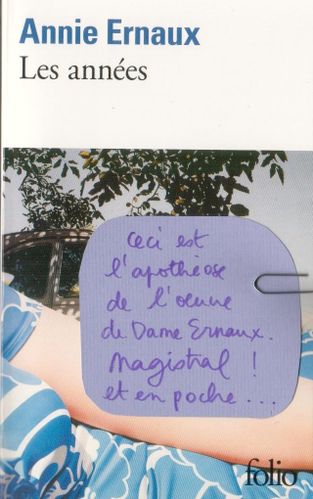 Annie Ernaux
Les années
Ceci est
l'apothéose
de l'oeuvre
de Dame Ernaux.
Magistral !
et en poche...
folio